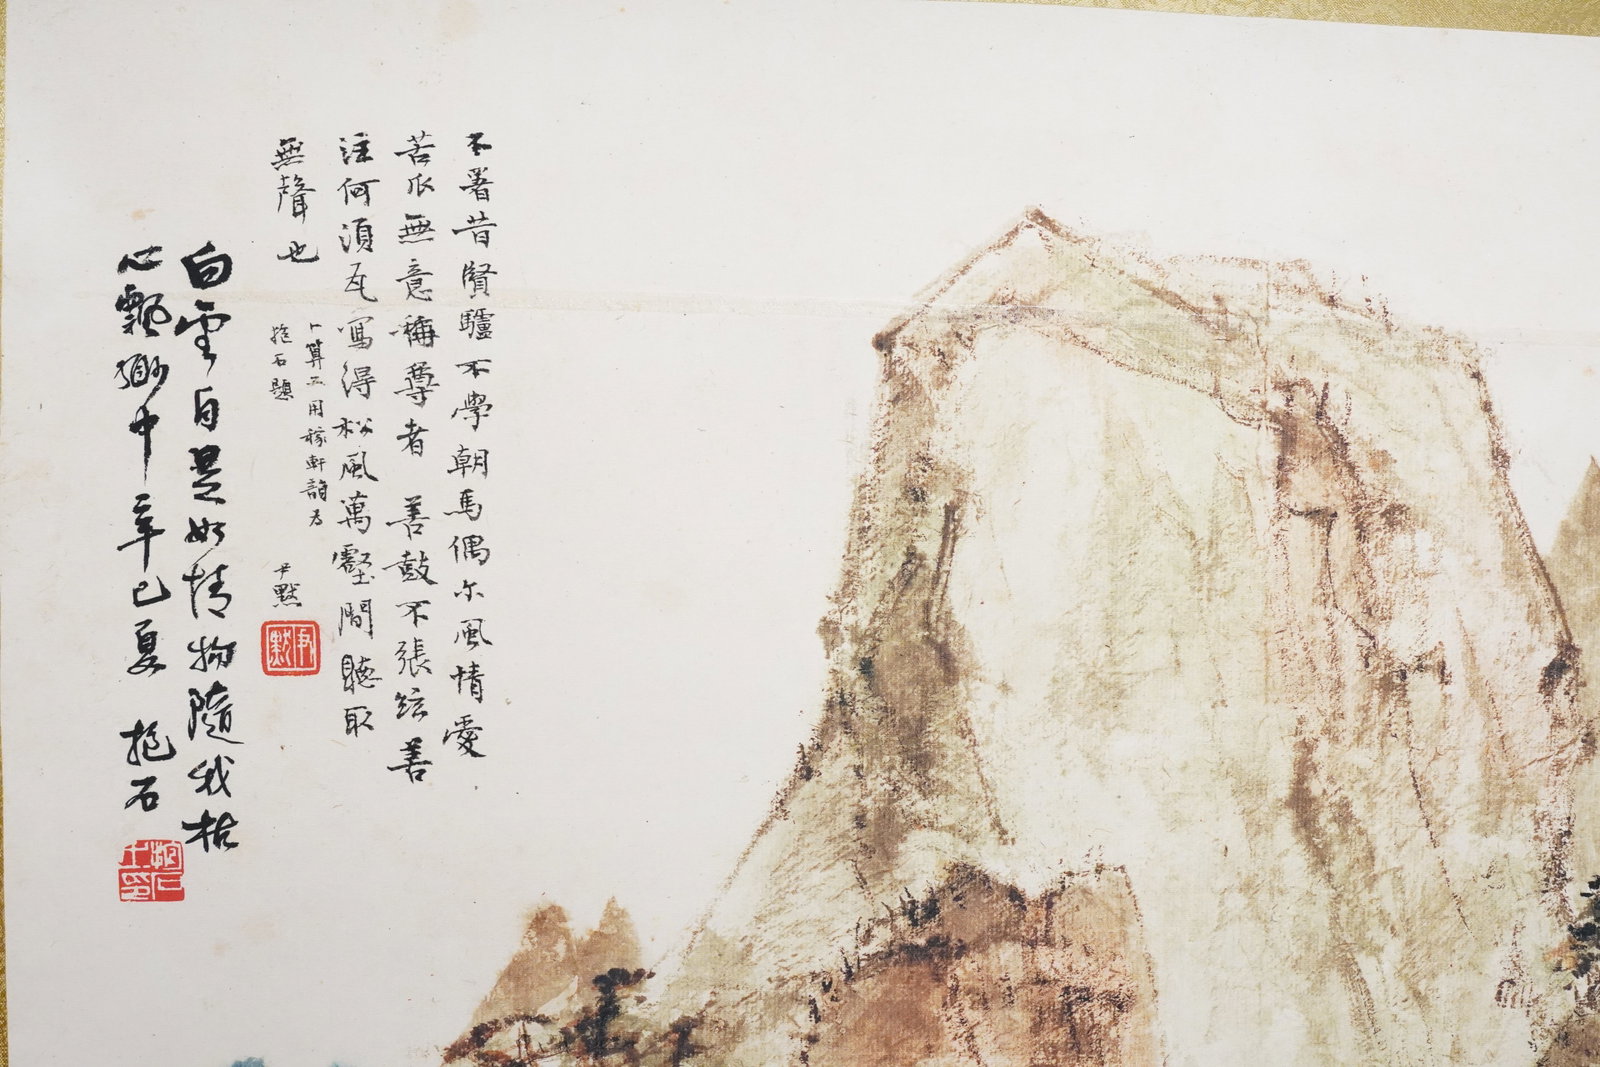 不署昔賢驢不學朝馬偶尔風情愛
苦瓜無意稱尊者善鼓不張絃善
注何須瓦寫得松風萬壑間聽取
無聲也
卜算子用稼軒韻為
抱石題
尹默
尹默
白雲自是如情物隨我枯
心飄渺中辛巳夏 抱石